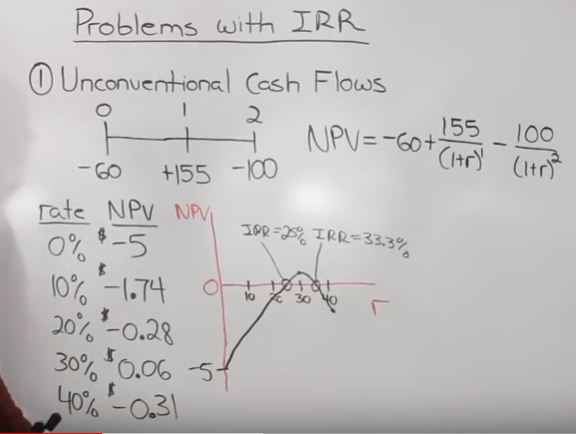 Problems with IRR
① Unconventional Cash Flows
0 1 2
-60 +155 -100
NPV = -60 + 155/(1+r)¹ - 100/(1+r)²
rate NPV
0% $-5
10% $-1.74
20% $-0.28
30% $0.06
40% $-0.31
NPV
IRR=25% IRR=33.3%
0
10 20 30 40
r
-5